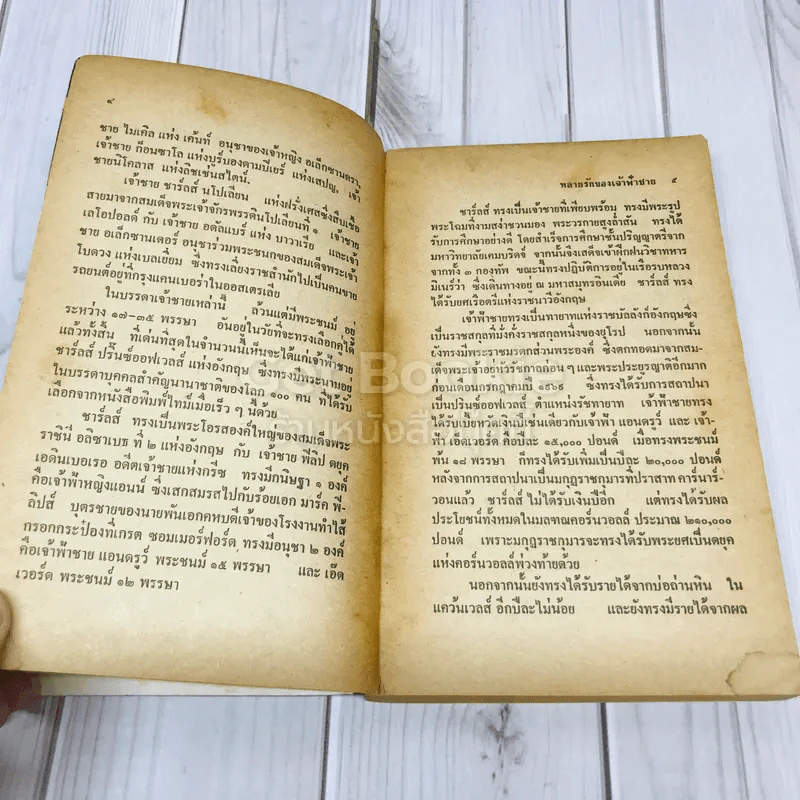 ๔
ชาย ไมเคิล แห่ง เค้นท์ อนุชาของเจ้าหญิง อเล็กซานดรา,
เจ้าชาย ก็อนซาโล แห่งบูร์บองดามปิเยร์ แห่งสเปญ, เจ้า
ชายนิโคลาส แห่งลิชเช่นสไตน์.
เจ้าชาย ชาร์ลส์ นโปเลียน แห่งฝรั่งเศสซึ่งสืบเชื้อ
สายมาจากสมเด็จพระเจ้าจักรพรรดินโปเลียนที่ ๑ เจ้าชาย
เลโอปอลด์ กับ เจ้าชาย อดัลแบร์ แห่ง บาวาเรีย และเจ้า
ชาย อเล็กซานเดอร์ อนุชาร่วมพระชนกของสมเด็จพระเจ้า
โบดวง แห่งเบลเยี่ยม ซึ่งทรงเลี่ยงราชสำนักไปเป็นคนขาย
รถยนต์อยู่ที่กรุงแคนเบอร่าในออสเตรเลีย
ในบรรดาเจ้าชายเหล่านี้ ล้วนแต่มีพระชนม์ อยู่
ระหว่าง ๑๗–๓๕ พรรษา อันอยู่ในวัยที่จะทรงเลือกคู่ได้
แล้วทั้งสิ้น ที่เด่นที่สุดในจำนวนนี้เห็นจะได้แก่เจ้าฟ้าชาย
ชาร์ลส์ ปริ๊นซ์ออฟเวลส์ แห่งอังกฤษ ซึ่งทรงมีพระนามอยู่
ในบรรดาบุคคลสำคัญนานาชาติของโลก ๑๐๐ คน ที่ได้รับ
เลือกจากหนังสือพิมพ์ไทม์เมื่อเร็ว ๆ นี้ด้วย
ชาร์ลส์ ทรงเป็นพระโอรสองค์ใหญ่ของสมเด็จพระ
ราชินี อลิซาเบธ ที่ ๒ แห่งอังกฤษ กับ เจ้าชาย ฟิลิป ดยุค
เอดินเบอเรอ อดีตเจ้าชายแห่งกรีซ ทรงมีกนิษฐา ๑ องค์
คือเจ้าฟ้าหญิงแอนน์ ซึ่งเสกสมรสไปกับร้อยเอก มาร์ค ฟี-
ลิปส์ บุตรชายของนายพันเอกคหบดีเจ้าของโรงงานทำไส้
กรอกกระป๋องที่เกรต ซอมเมอร์ฟอร์ด ทรงมีอนุชา ๒ องค์
คือเจ้าฟ้าชาย แอนดรูว์ พระชนม์ ๑๕ พรรษา และ เอ็ด
เวอร์ด พระชนม์ ๑๒ พรรษา
หลายรักของเจ้าฟ้าชาย ๕
ชาร์ลส์ ทรงเป็นเจ้าชายที่เพียบพร้อม ทรงมีพระรูป
พระโฉมที่งามสง่าชวนมอง พระวรกายสูงล่ำสัน ทรงได้
รับการศึกษาอย่างดี โดยสำเร็จการศึกษาชั้นปริญญาตรีจาก
มหาวิทยาลัยเคมบริดจ์ จากนั้นจึงเสด็จเข้าฝึกฝนวิชาทหาร
จากทั้ง ๓ กองทัพ ขณะนี้ทรงปฏิบัติการอยู่ในเรือรบหลวง
มิเนร์ว่า ซึ่งเดินทางอยู่ ณ มหาสมุทรอินเดีย ชาร์ลส์ ทรง
ได้รับยศเรือตรีแห่งราชนาวีอังกฤษ
เจ้าฟ้าชายทรงเป็นทายาทแห่งราชบัลลังก์อังกฤษซึ่ง
เป็นราชสกุลที่มั่งคั่งราชสกุลหนึ่งของยุโรป นอกจากนั้น
ยังทรงมีพระราชมรดกส่วนพระองค์ ซึ่งตกทอดมาจากสม-
เด็จพระเจ้าอยู่หัวรัชกาลก่อน ๆ และพระประยูรญาติอีกมาก
ก่อนเดือนกรกฎาคมปี ๑๙๖๙ ซึ่งทรงได้รับการสถาปนา
เป็นปริ๊นซ์ออฟเวลส์ ตำแหน่งรัชทายาท เจ้าฟ้าชายทรง
ได้รับเบี้ยหวัดเงินปีเช่นเดียวกับเจ้าฟ้า แอนดรูว์ และ เจ้า-
ฟ้า เอ็ดเวอร์ด คือปีละ ๑๕,๐๐๐ ปอนด์ เมื่อทรงพระชนม์
พ้น ๑๘ พรรษา ก็ทรงได้รับเพิ่มเป็นปีละ ๒๐,๐๐๐ ปอนด์
หลังจากการสถาปนาเป็นมกุฎราชกุมารที่ปราสาท คาร์นาร์-
วอนแล้ว ชาร์ลส์ ไม่ได้รับเงินปีอีก แต่ทรงได้รับผล
ประโยชน์ทั้งหมดในมลฑณคอร์นวอลล์ ประมาณ ๒๑๐,๐๐๐
ปอนด์ เพราะมกุฎราชกุมารจะทรงได้รับพระยศเป็นดยุค
แห่งคอร์นวอลล์พ่วงท้ายด้วย
นอกจากนั้นยังทรงได้รับรายได้จากบ่อถ่านหิน ใน
แคว้นเวลส์ อีกปีละไม่น้อย และยังทรงมีรายได้จากผล